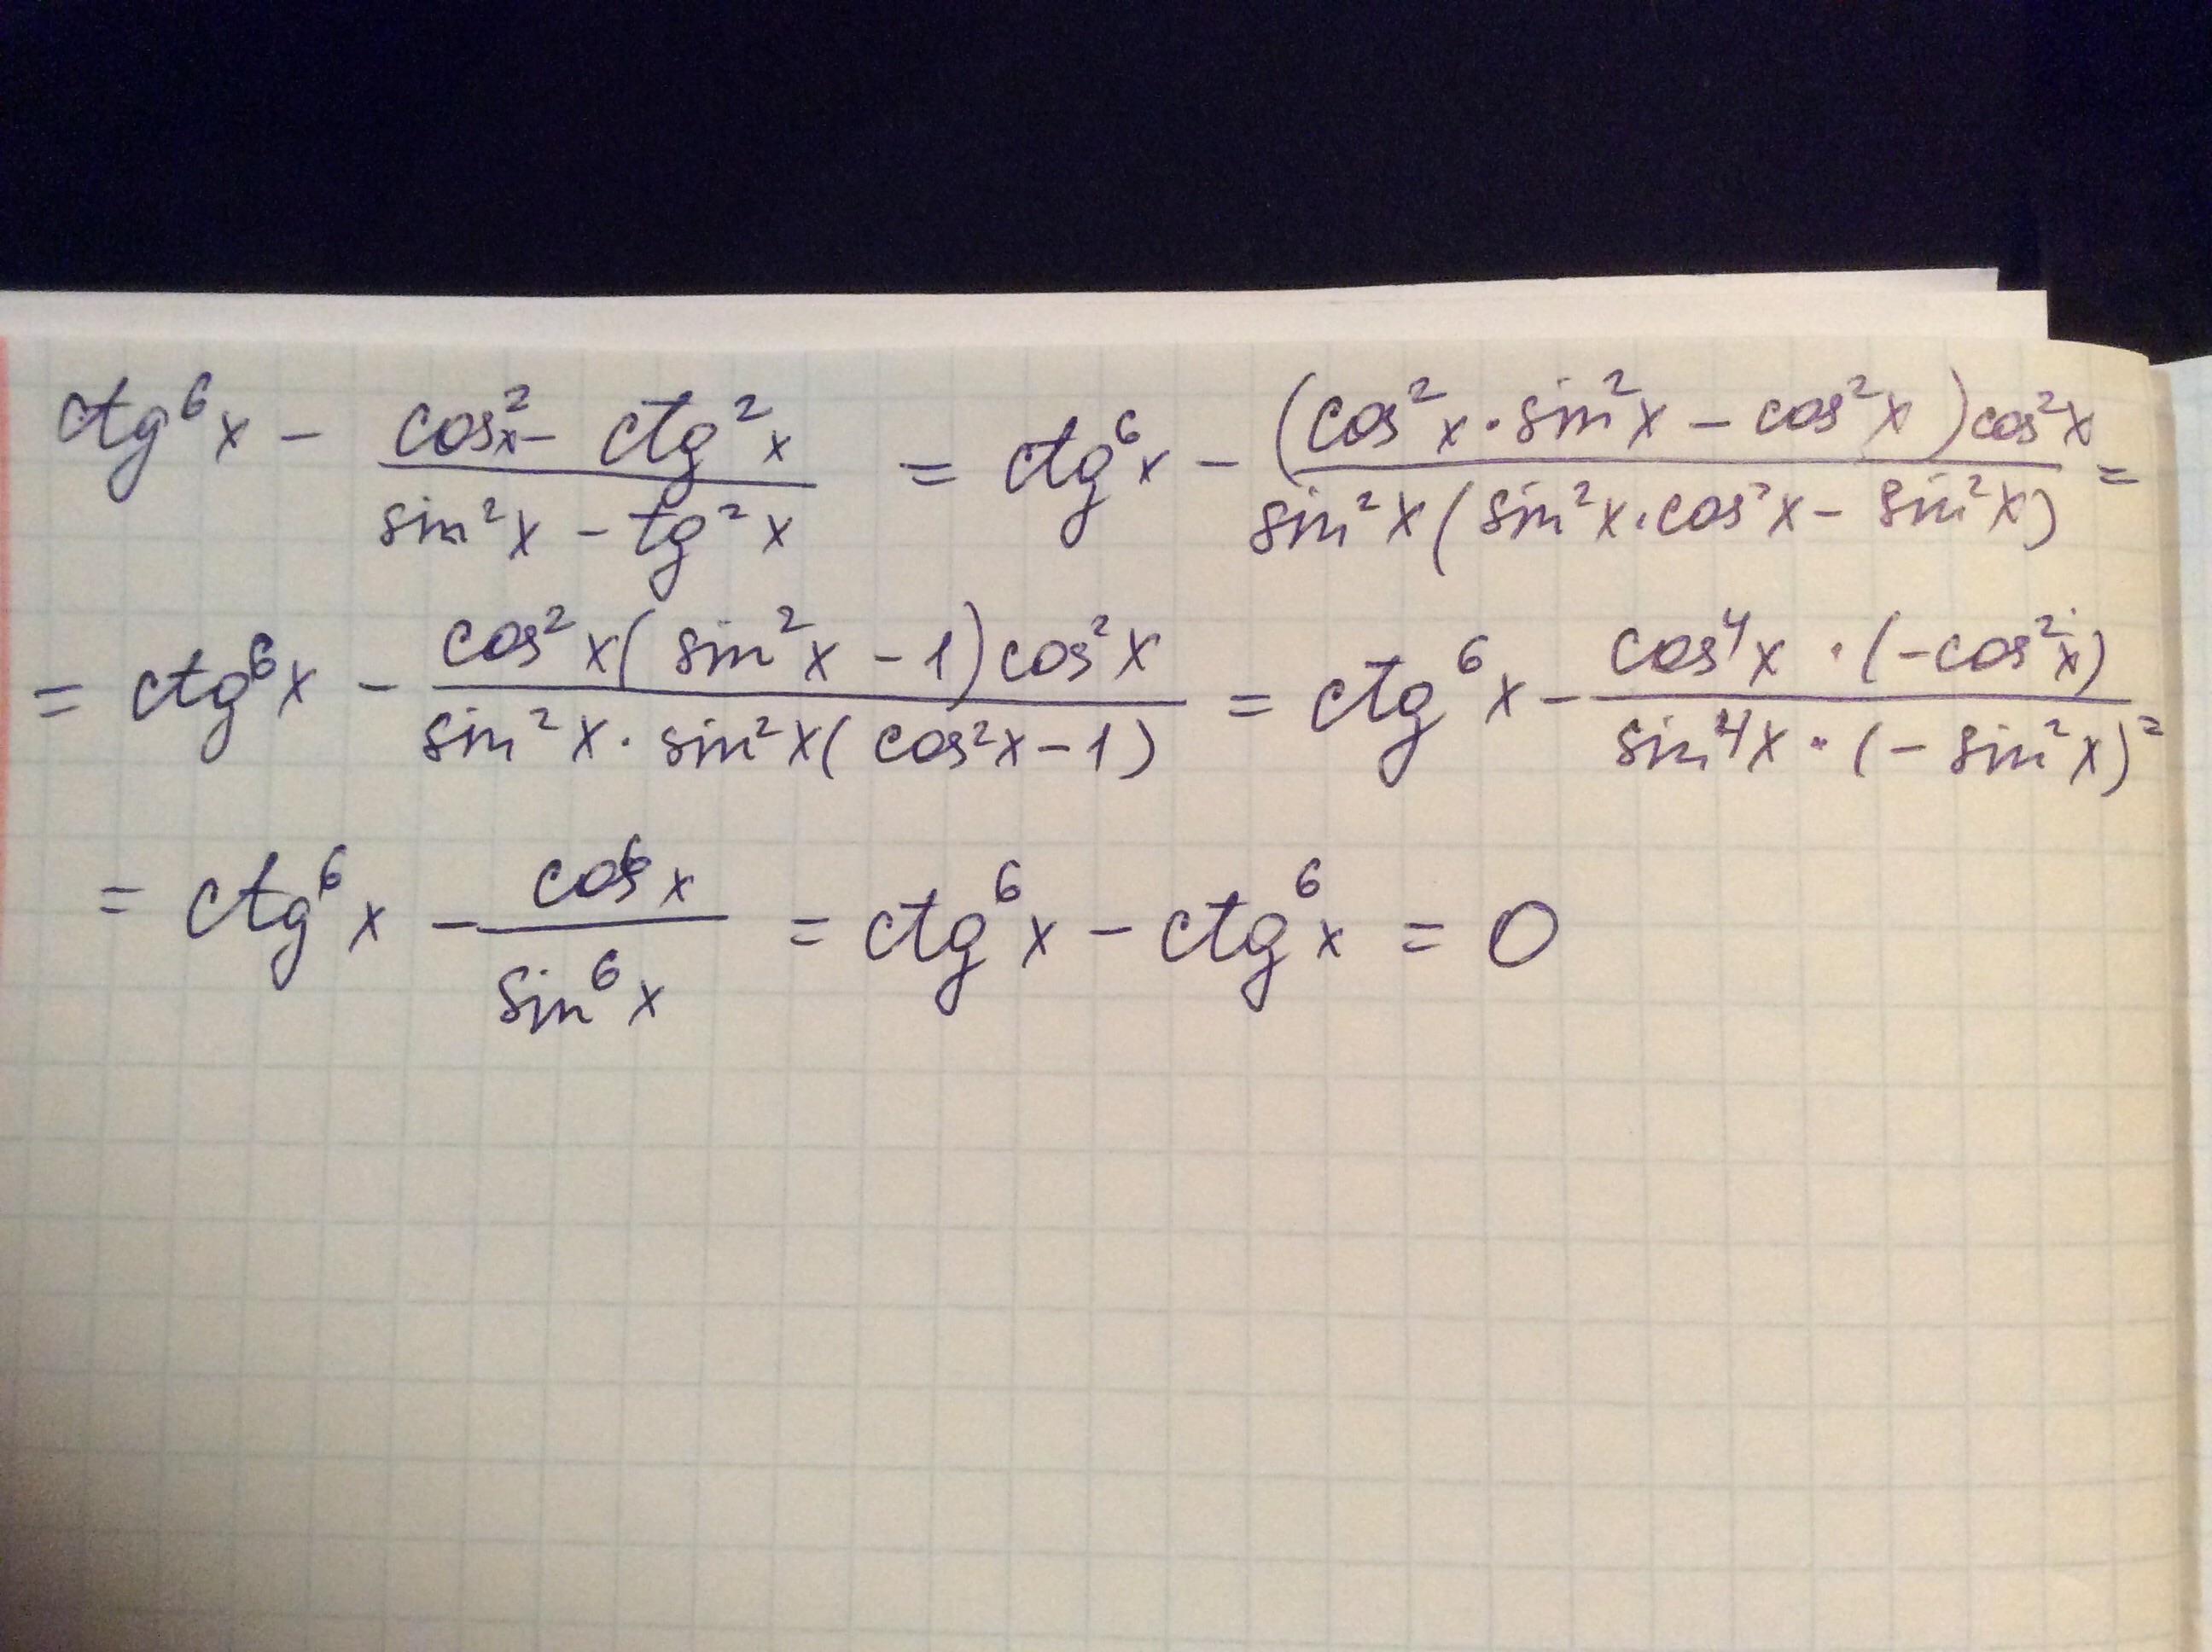 ctg⁶x − (cos²x − ctg²x)/(sin²x − tg²x) = ctg⁶x − ((cos²x·sin²x − cos²x)cos²x)/(sin²x(sin²x·cos²x − sin²x)) =
= ctg⁶x − (cos²x(sin²x − 1)cos²x)/(sin²x·sin²x(cos²x − 1)) = ctg⁶x − (cos⁴x·(−cos²x))/(sin⁴x·(−sin²x)) =
= ctg⁶x − cos⁶x/sin⁶x = ctg⁶x − ctg⁶x = 0